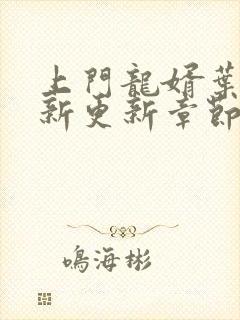 上門龍婿葉
新更新章節
鳴海彬